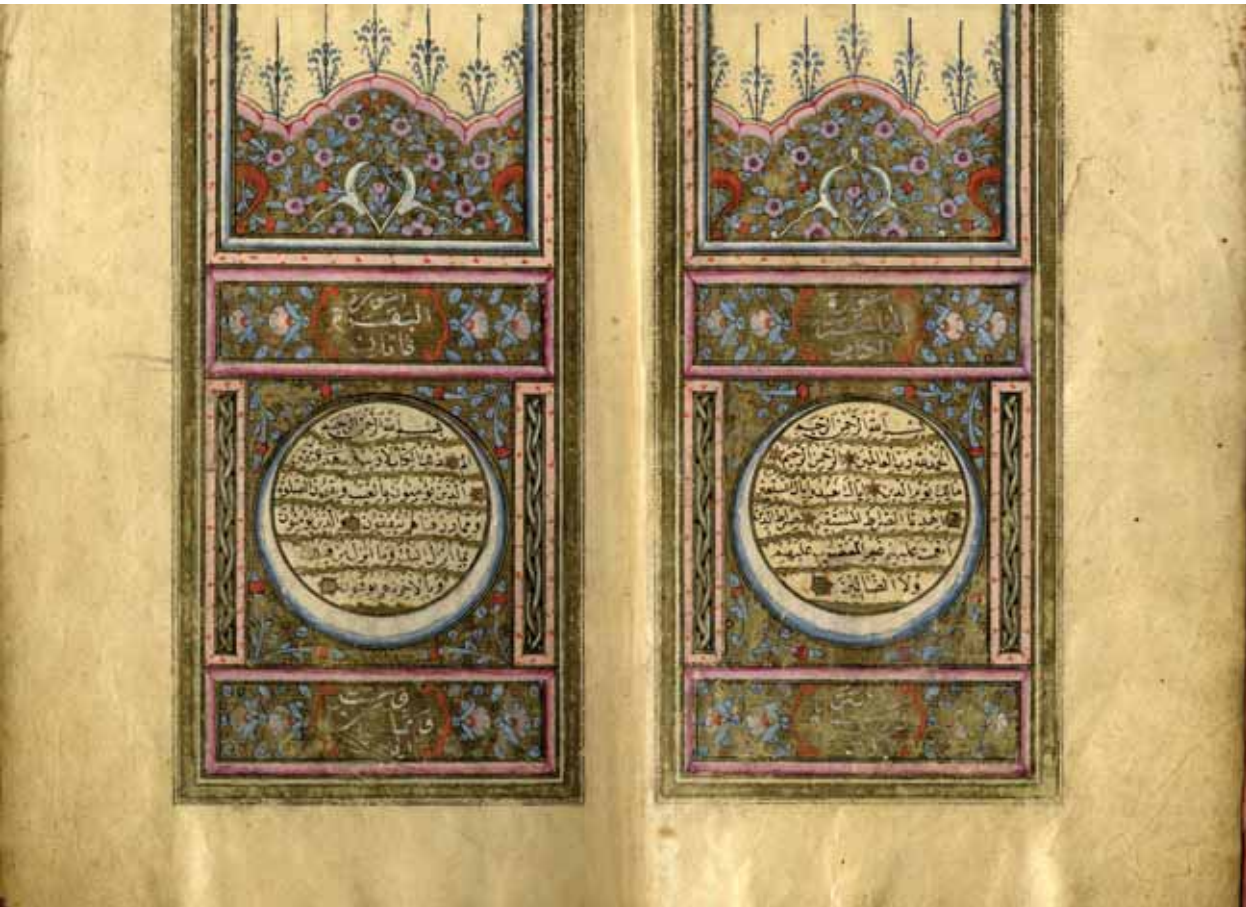 سورة
الكتاب
بسم الله الرحمن الرحيم
الحمد لله رب العالمين الرحمن الرحيم
مالك يوم الدين اياك نعبد واياك نستعين
اهدنا الصراط المستقيم صراط الذين
انعمت عليهم غير المغضوب عليهم
ولا الضالين
سورة
البقرة
بسم الله الرحمن الرحيم
الم ذلك الكتاب لا ريب فيه هدى للمتقين
الذين يؤمنون بالغيب ويقيمون الصلوة
ومما رزقناهم ينفقون والذين يؤمنون
بما انزل اليك وما انزل من
وبالاخرة هم يوقنون